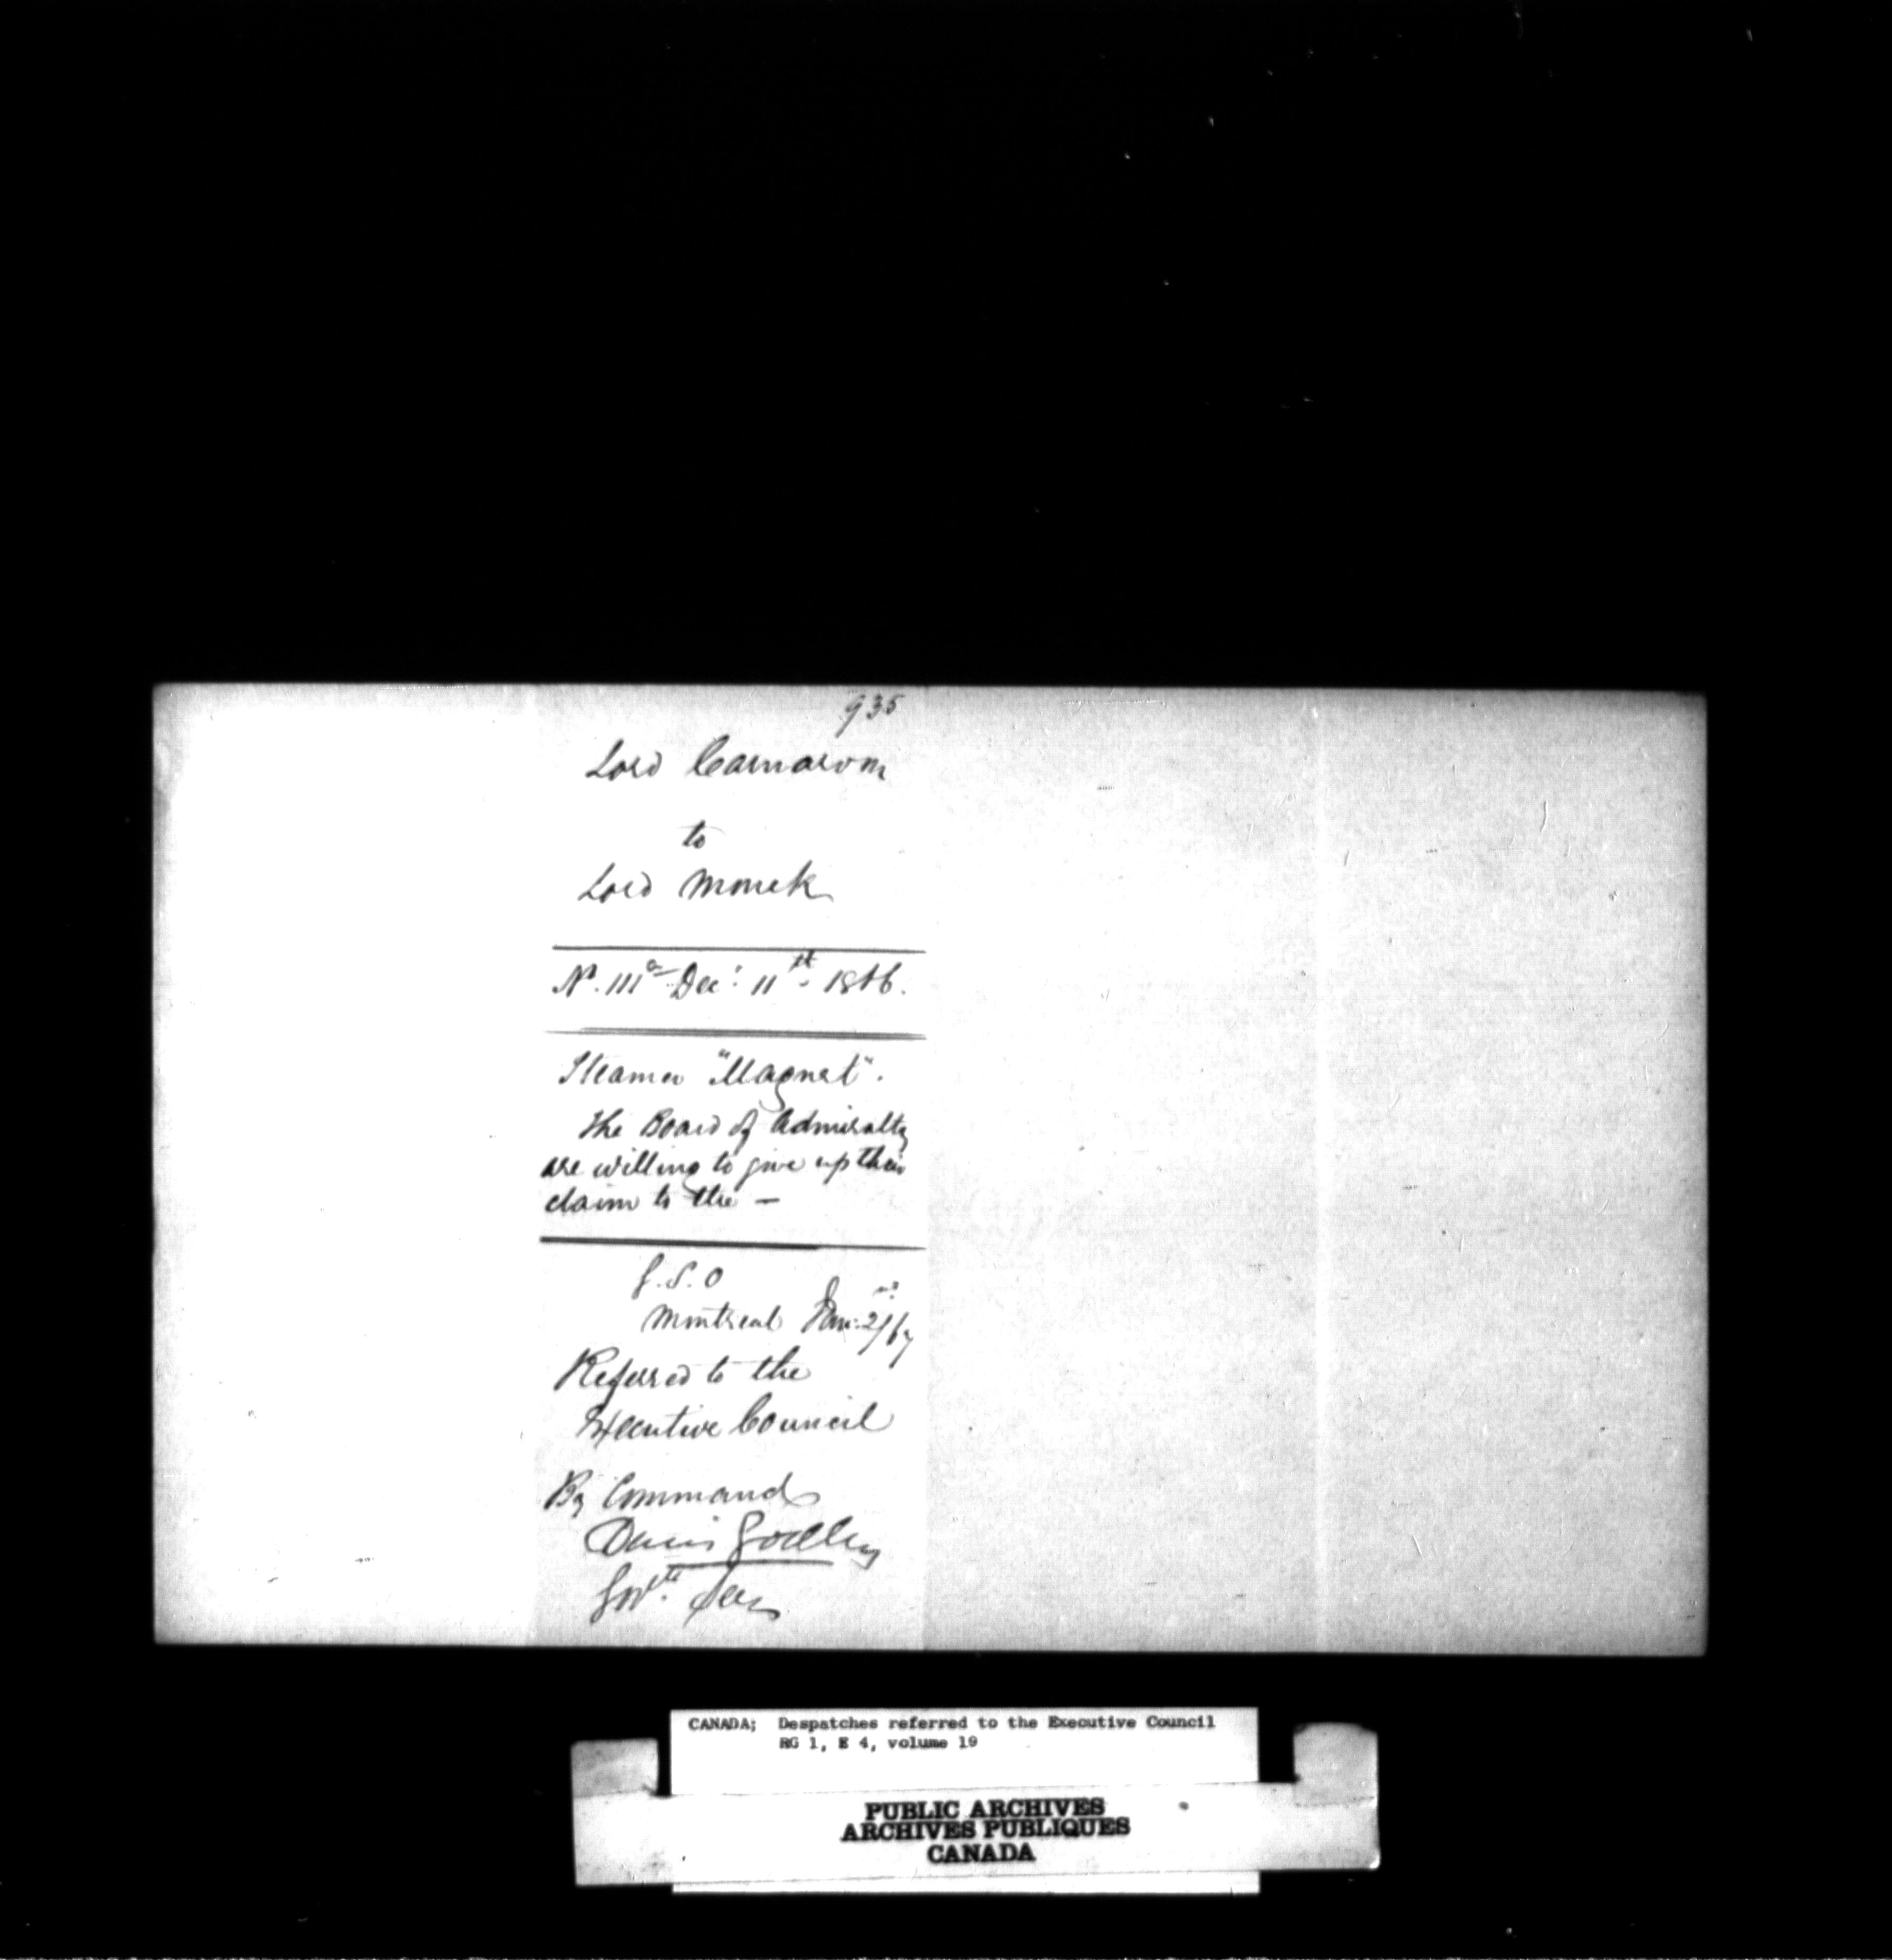 935
Lord Carnarvon
to
Lord Monck
No. 111a Dec: 11th 1866.
Steamer "Magnet".
The Board of Admiralty
are willing to give up their
claim to the —
G.S.O
Montreal Jan: 2/67
Referred to the
Executive Council
By Command
Denis Godley
Govr. Secy
CANADA; Despatches referred to the Executive Council
RG 1, E 4, volume 19
PUBLIC ARCHIVES
ARCHIVES PUBLIQUES
CANADA